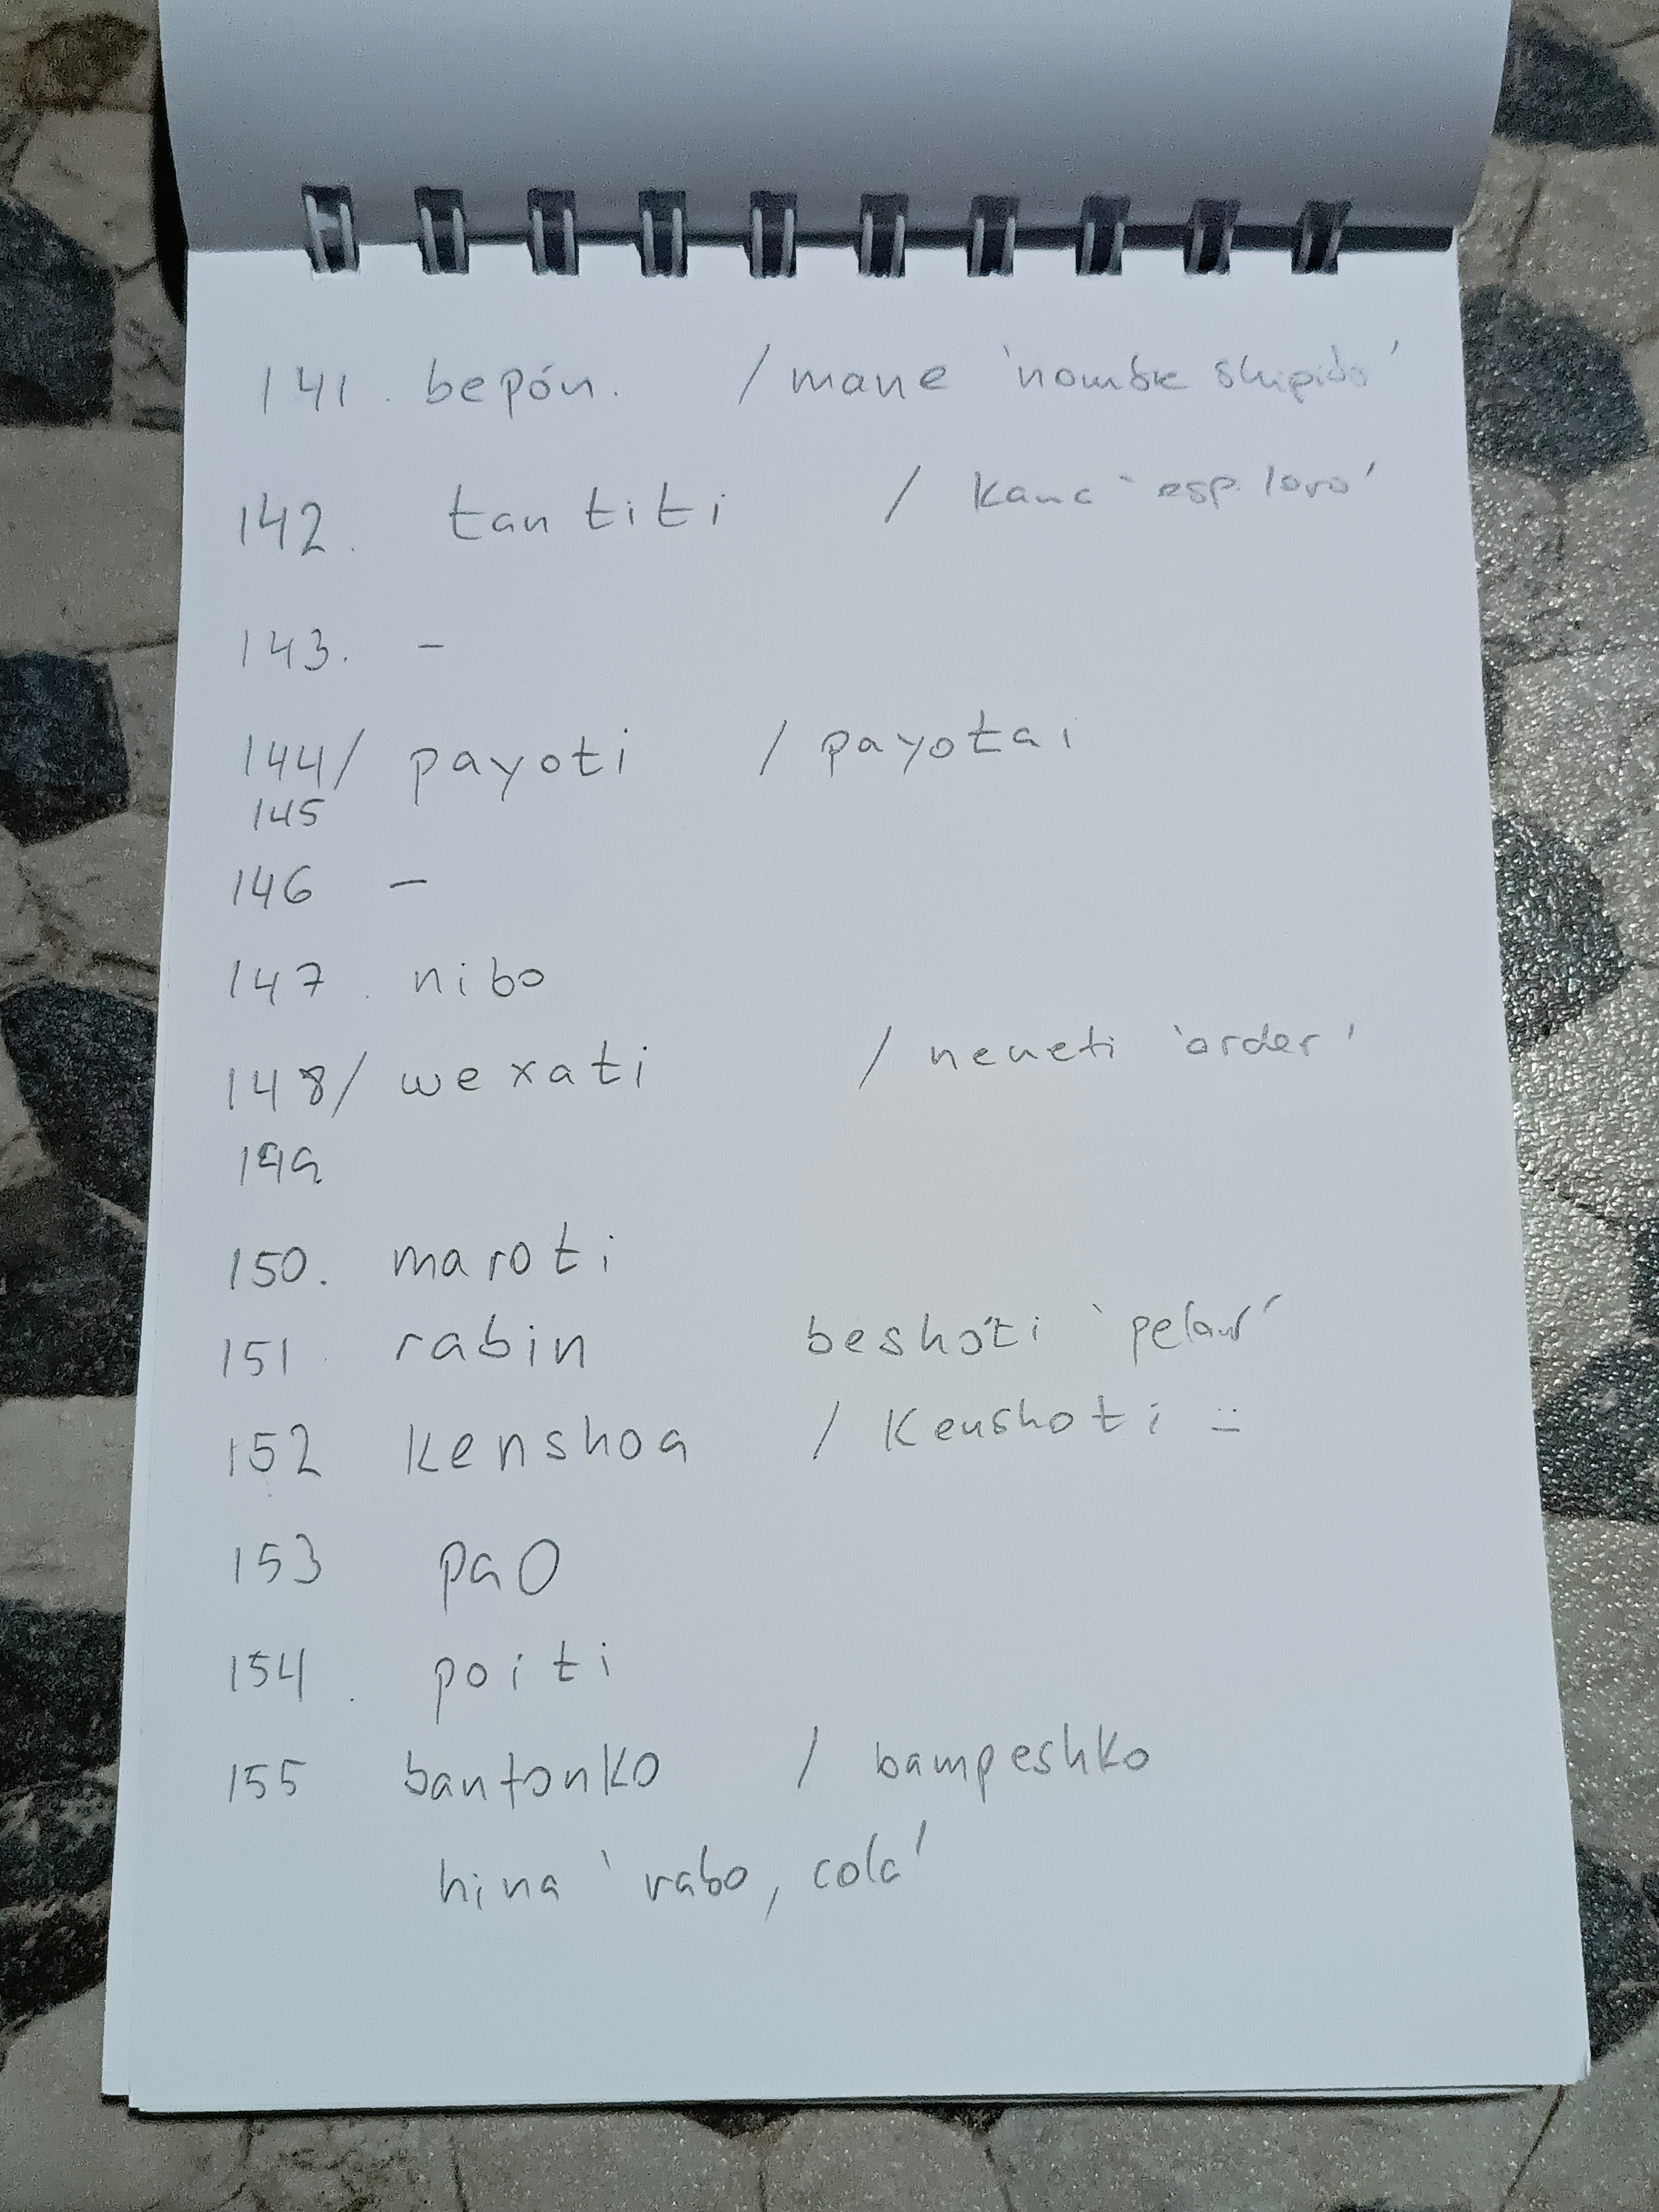 141. bepón. / mane 'nombre shipibo'
142. tantiti / kana 'esp. loro'
143. -
144/ payoti / payotai
145
146 -
147. nibo
148/ wexati / neneti 'order'
149
150. maroti
151. rabin beshoti 'pelar'
152 kenshoa / kenshoti =
153 pao
154. poiti
155 bantonko / bampeshko
hina 'rabo, cola'